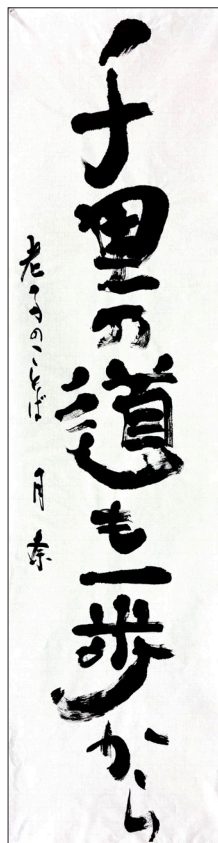 千里の道も一歩から
老子のことば 月奈